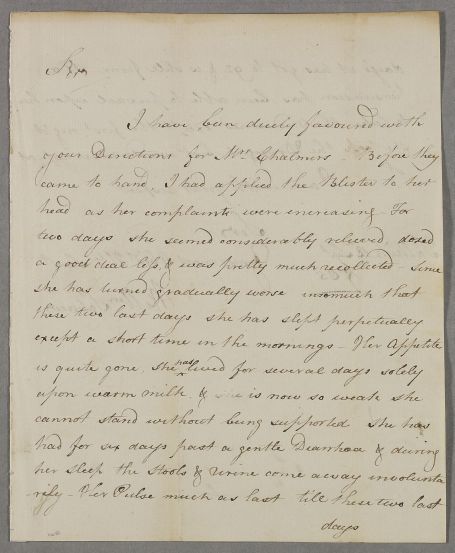 Sir
I have been duely favoured with
your Directions for Mrs Chalmers. Before they
came to hand, I had applied the Blister to her
head as her complaints were increasing For
two days she seemed considerably relieved, dosed
a good deal less, & was pretty much recollected - since
she has turned gradually worse insomuch that
these two last days she has slept perpetually
except a short time in the mornings - Her Appetite
is quite gone, she has lived for several days solely
upon warm milk, & she is now so weak she
cannot stand without being supported she has
had for six days past a gentle Diarrhœa & during
her sleep the stools & Urine come away involunta
rily - Her Pulse much as last till these two last
days